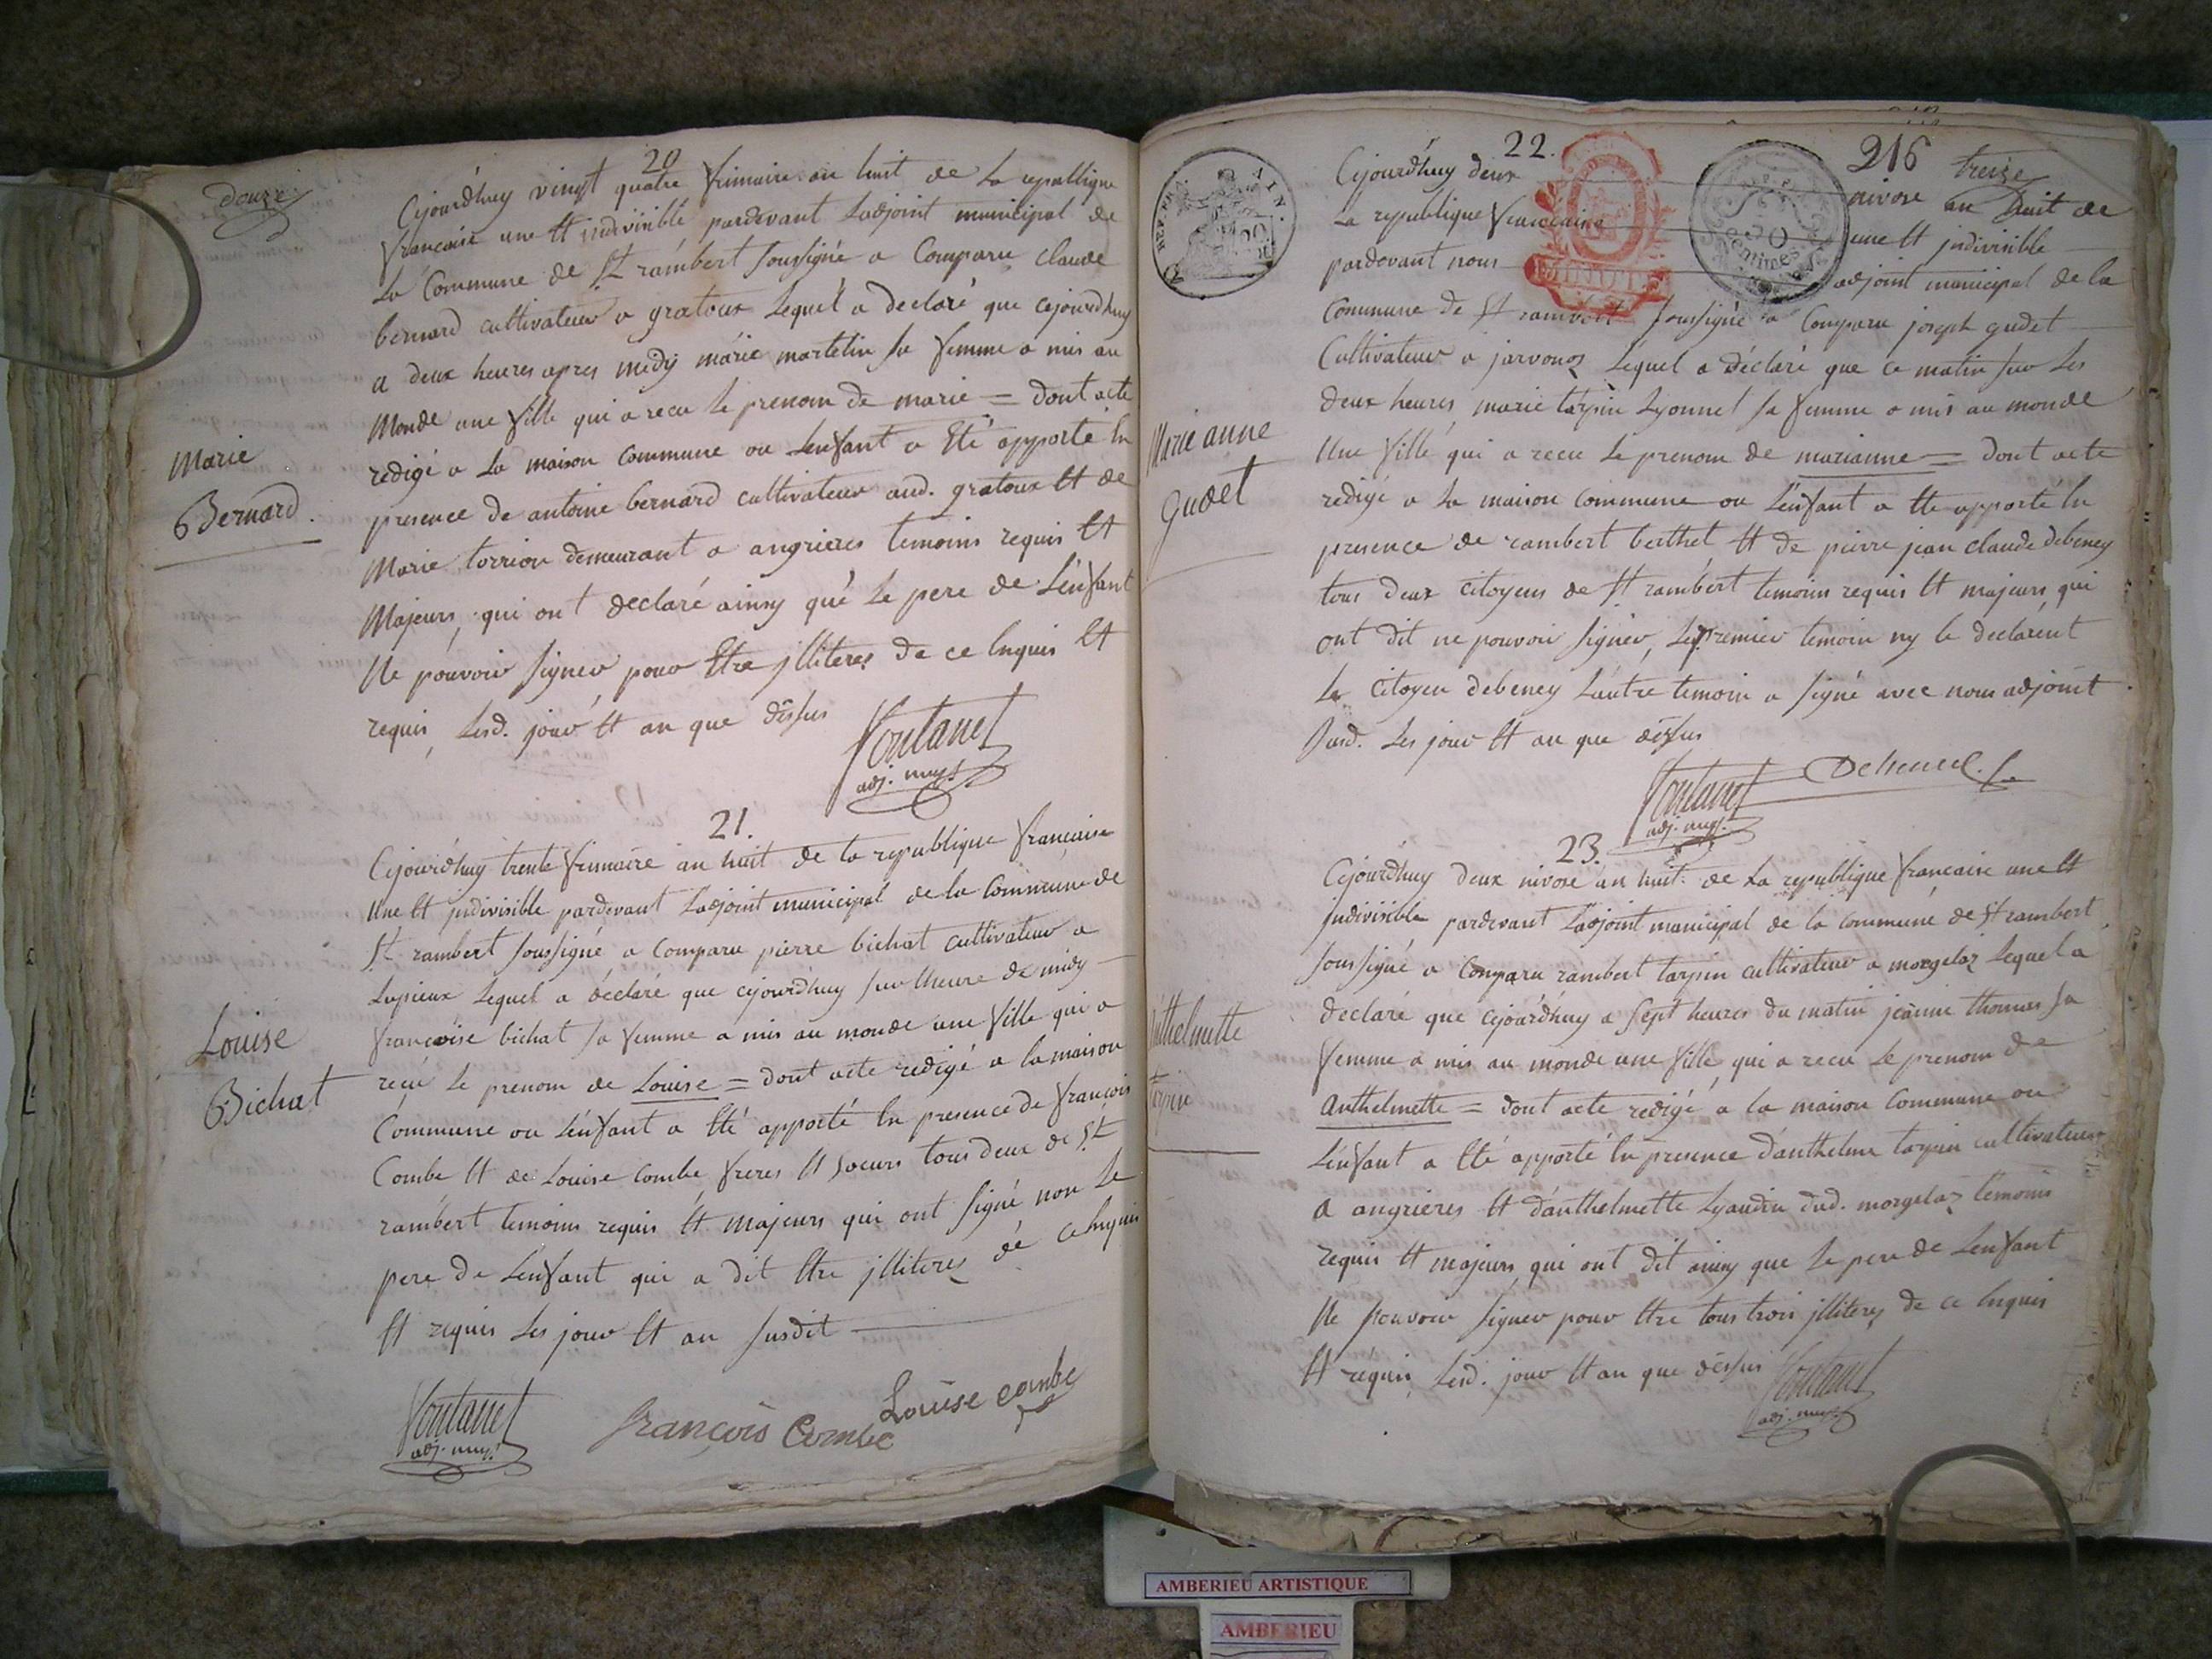 douze
20
Cejourd'huy vingt quatre frimaire an huit de La republique
francaise une Et jndivisible pardevant Ladjoint municipal de
La Commune de St rambert soussigné a Comparu claude
bernard cultivateur a gratoux Lequel a declaré que cejourdhuy
a deux heures apres midy marie martelin sa femme a mis au
Monde une fille qui a recu Le prenom de marie = dont acte
redigé a La maison commune ou Lenfant a Eté apporté En
presence de antoine bernard cultivateur aud. gratoux Et de
Marie torrion demeurant a angrieres temoins requis Et
Majeurs, qui ont declaré ainsy que Le pere de L'enfant
Ne pouvoir signer pour Etre jlliteres de ce Enquis Et
requis, Lesd. jour Et an que dessus
Marie
Bernard.
Montanet
adj. mupl
21.
Cejourd'huy trente frimaire an huit de la republique francaise
Une Et jndivisible pardevant Ladjoint municipal de la Commune de
St rambert soussigné a comparu pierre bichat cultivateur a
Lupieux Lequel a déclaré que cejourd'huy sur Lheure de midy
francoise bichat sa femme a mis au monde une fille qui a
reçu Le prenom de Louise = dont acte redigé a la maison
Commune ou L'enfant a Eté apporté En presence de francois
Combe Et de Louise combe freres Et soeurs tous deux de St
rambert temoins requis Et majeurs qui ont signé non Le
pere de Lenfant qui a dit Etre jlliteres de ce Enquis
Et requis Les jour Et an susdit
Louise
Bichat
Montanet
adj. mupl
françois Combe
Louise combe
22.
216
treize
Cejourd'huy deux nivose an huit de
La republique francaise une Et jndivisible
pardevant nous adjoint municipal de la
Commune de St rambert soussigné a Comparu joseph gudet
Cultivateur a jarvonoz Lequel a déclaré que ce matin sur Les
deux heures, marie tarpin Lyonnel sa femme a mis au monde
Une fille qui a recu Le prenom de marianne = dont acte
redigé a La maison commune ou L'enfant a Ete apporté En
presence de rambert berthet Et de pierre jean claude debeney
tous deux citoyens de St rambert temoins requis Et majeurs, qui
ont dit ne pouvoir signer, Le premier temoin ny le declarent
Le Citoyen debeney L'autre temoin a signé avec nous adjoint
susd. Les jour Et an que dessus
Marie anne
gudet
Montanet
adj. mupl
23.
Cejourd'huy deux nivose an huit de La republique francaise une Et
jndivisible pardevant L'adjoint municipal de la commune de St rambert
soussigné a Comparu rambert tarpin cultivateur a morgelaz Lequel a
declaré que cejourd'huy a sept heures du matin jeanne thomas sa
femme a mis au monde une fille qui a recu Le prenom de
Anthelmette = dont acte redigé a la maison Commune ou
L'enfant a Eté apporté En presence d'anthelme tarpin cultivateur
a angrieres Et d'anthelmette Lyaudin dud. morgelaz temoins
requis Et majeurs, qui ont dit ainsy que Le pere de Lenfant
Ne pouvoir signer pour Etre tous trois jlliteres de ce Enquis
Et requis, Lesd. jour Et an que dessus
Montanet
adj. mupl
AMBERIEU ARTISTIQUE
AMBERIEU